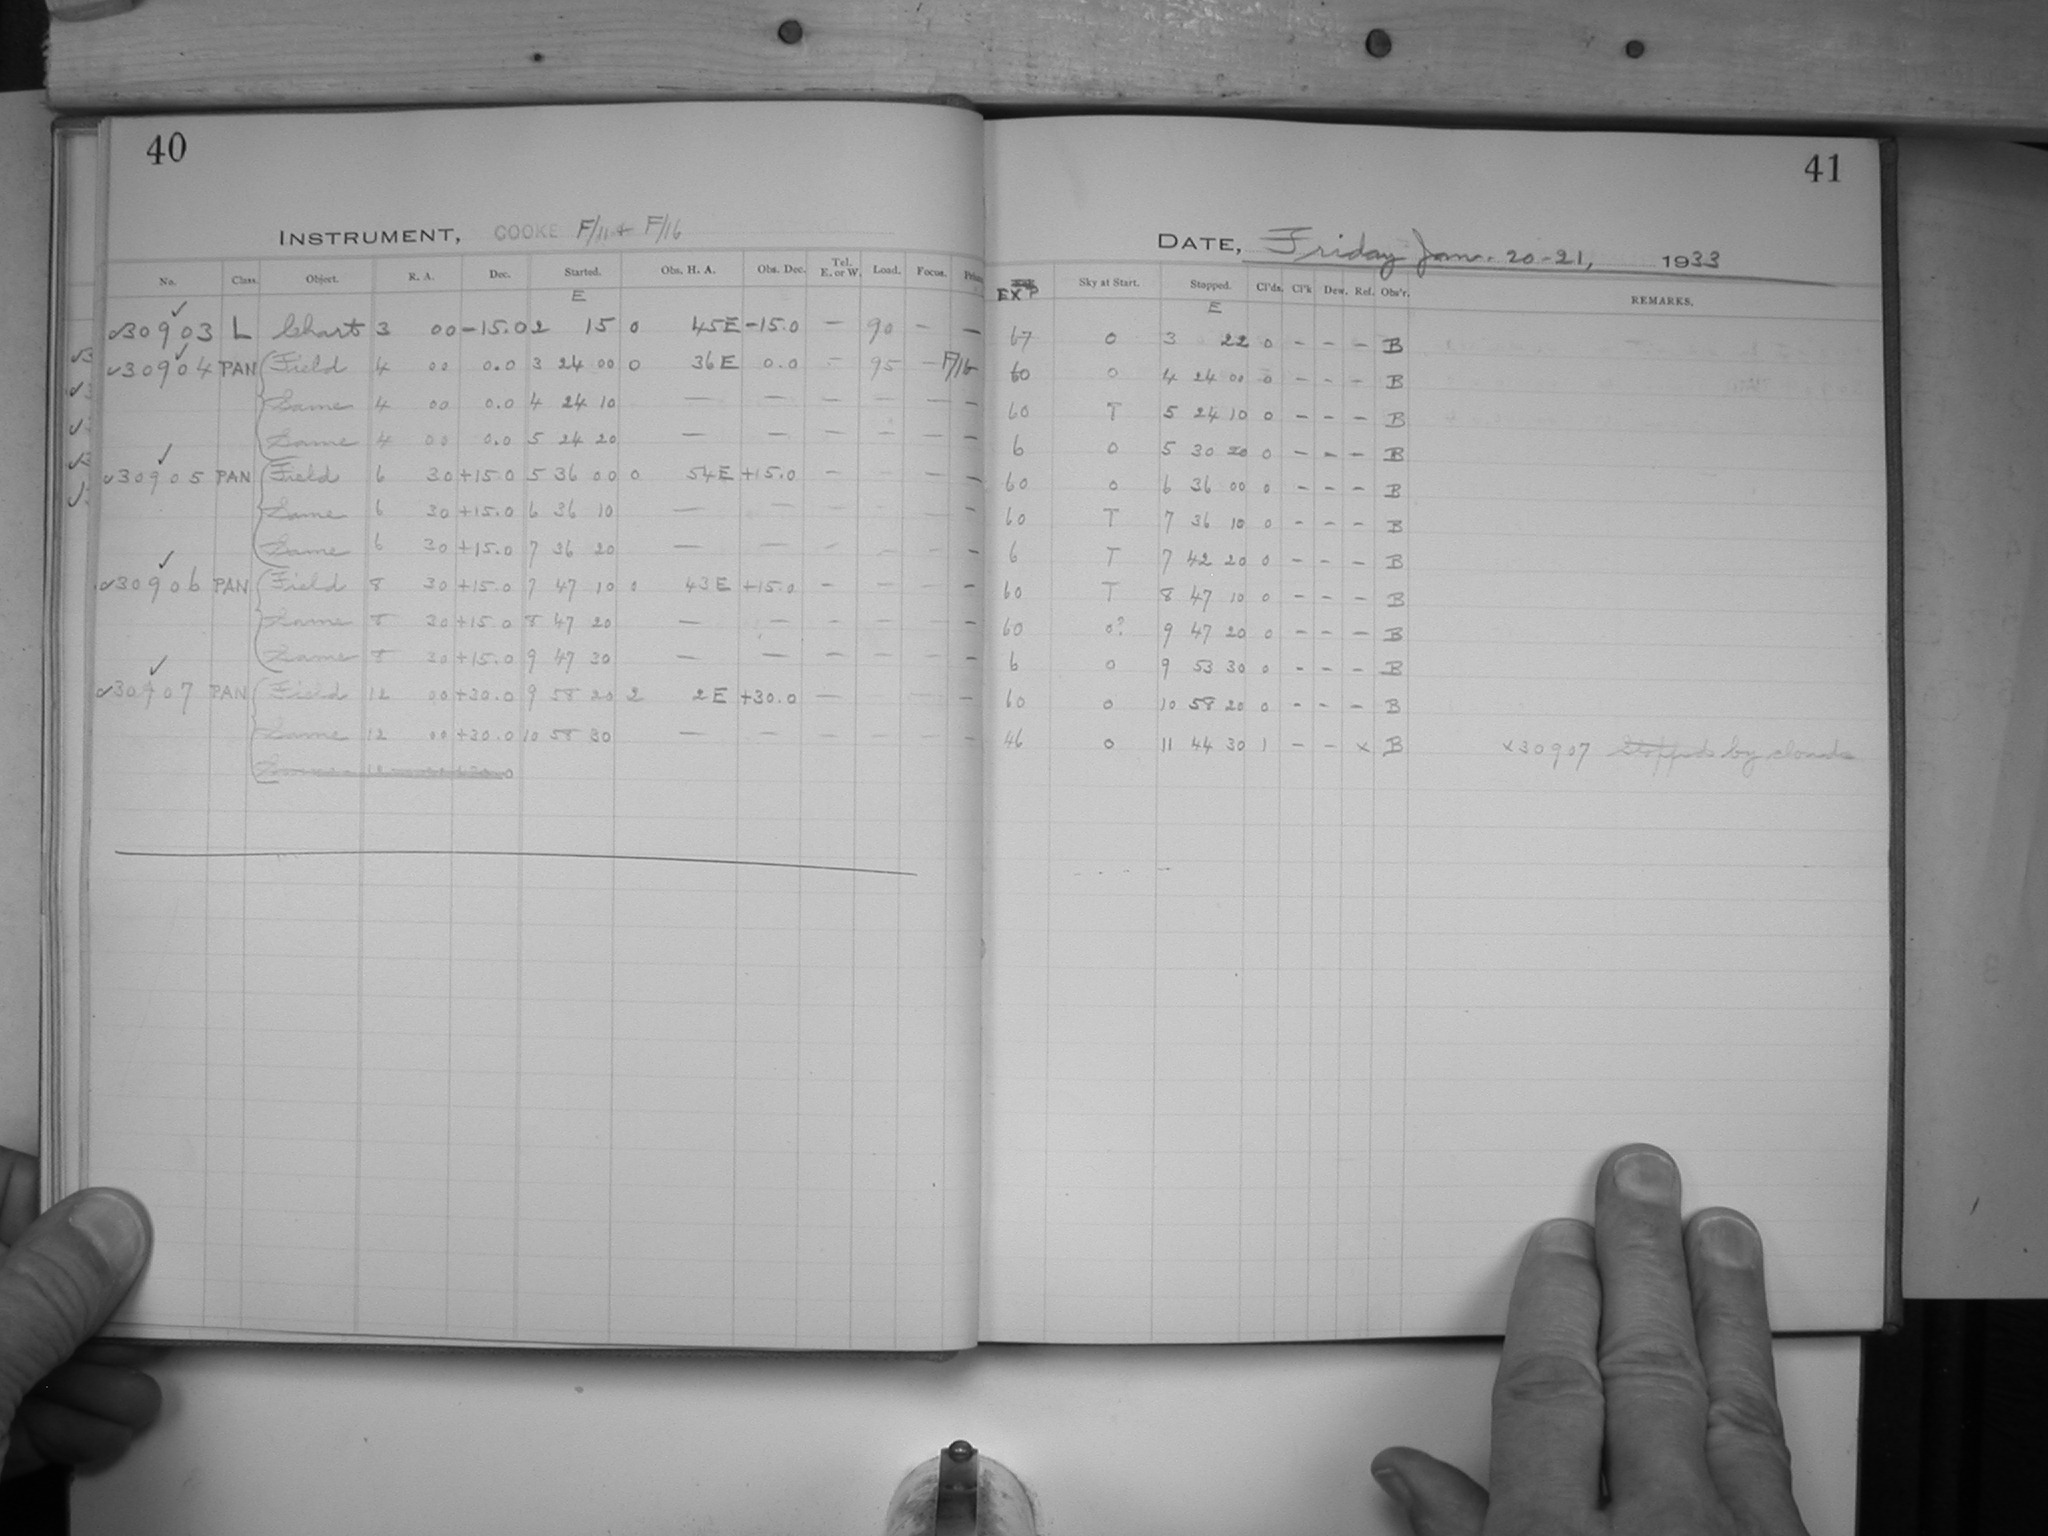 40
INSTRUMENT, COOKE F/11 + F/16
No. Class. Object. R. A. Dec. Started. Obs. H. A. Obs. Dec. Tel. E. or W. Load. Focus.
E
30903 L Chart 3 00 -15.0 2 15 0 45E -15.0 — 90 - —
30904 PAN Field 4 00 0.0 3 24 00 0 36E 0.0 - 95 - F/16
Same 4 00 0.0 4 24 10 — — — — — —
Same 4 00 0.0 5 24 20 — — — — — —
30905 PAN Field 6 30 +15.0 5 36 00 0 54E +15.0 - - - —
Same 6 30 +15.0 6 36 10 — — — — — -
Same 6 30 +15.0 7 36 20 — — - - - -
30906 PAN Field 8 30 +15.0 7 47 10 0 43E +15.0 - - - -
Same 8 30 +15.0 8 47 20 — — - - - -
Same 8 30 +15.0 9 47 30 — — — — — -
30907 PAN Field 12 00 +30.0 9 58 20 2 2E +30.0 — -
Same 12 00 +30.0 10 58 30 — — — — — -
41
DATE, Friday Jan. 20-21, 1933
EXP Sky at Start. Stopped. Cl'ds. Cl'k Dew. Ref. Obs'r. REMARKS.
E
67 0 3 22 0 - - - B
60 0 4 24 00 0 - - - B
60 T 5 24 10 0 - - - B
6 0 5 30 20 0 - - - B
60 0 6 36 00 0 - - - B
60 T 7 36 10 0 - - - B
6 T 7 42 20 0 - - - B
60 T 8 47 10 0 - - - B
60 0? 9 47 20 0 - - - B
6 0 9 53 30 0 - - - B
60 0 10 58 20 0 - - - B
46 0 11 44 30 1 - - x B x30907 Stopped by clouds